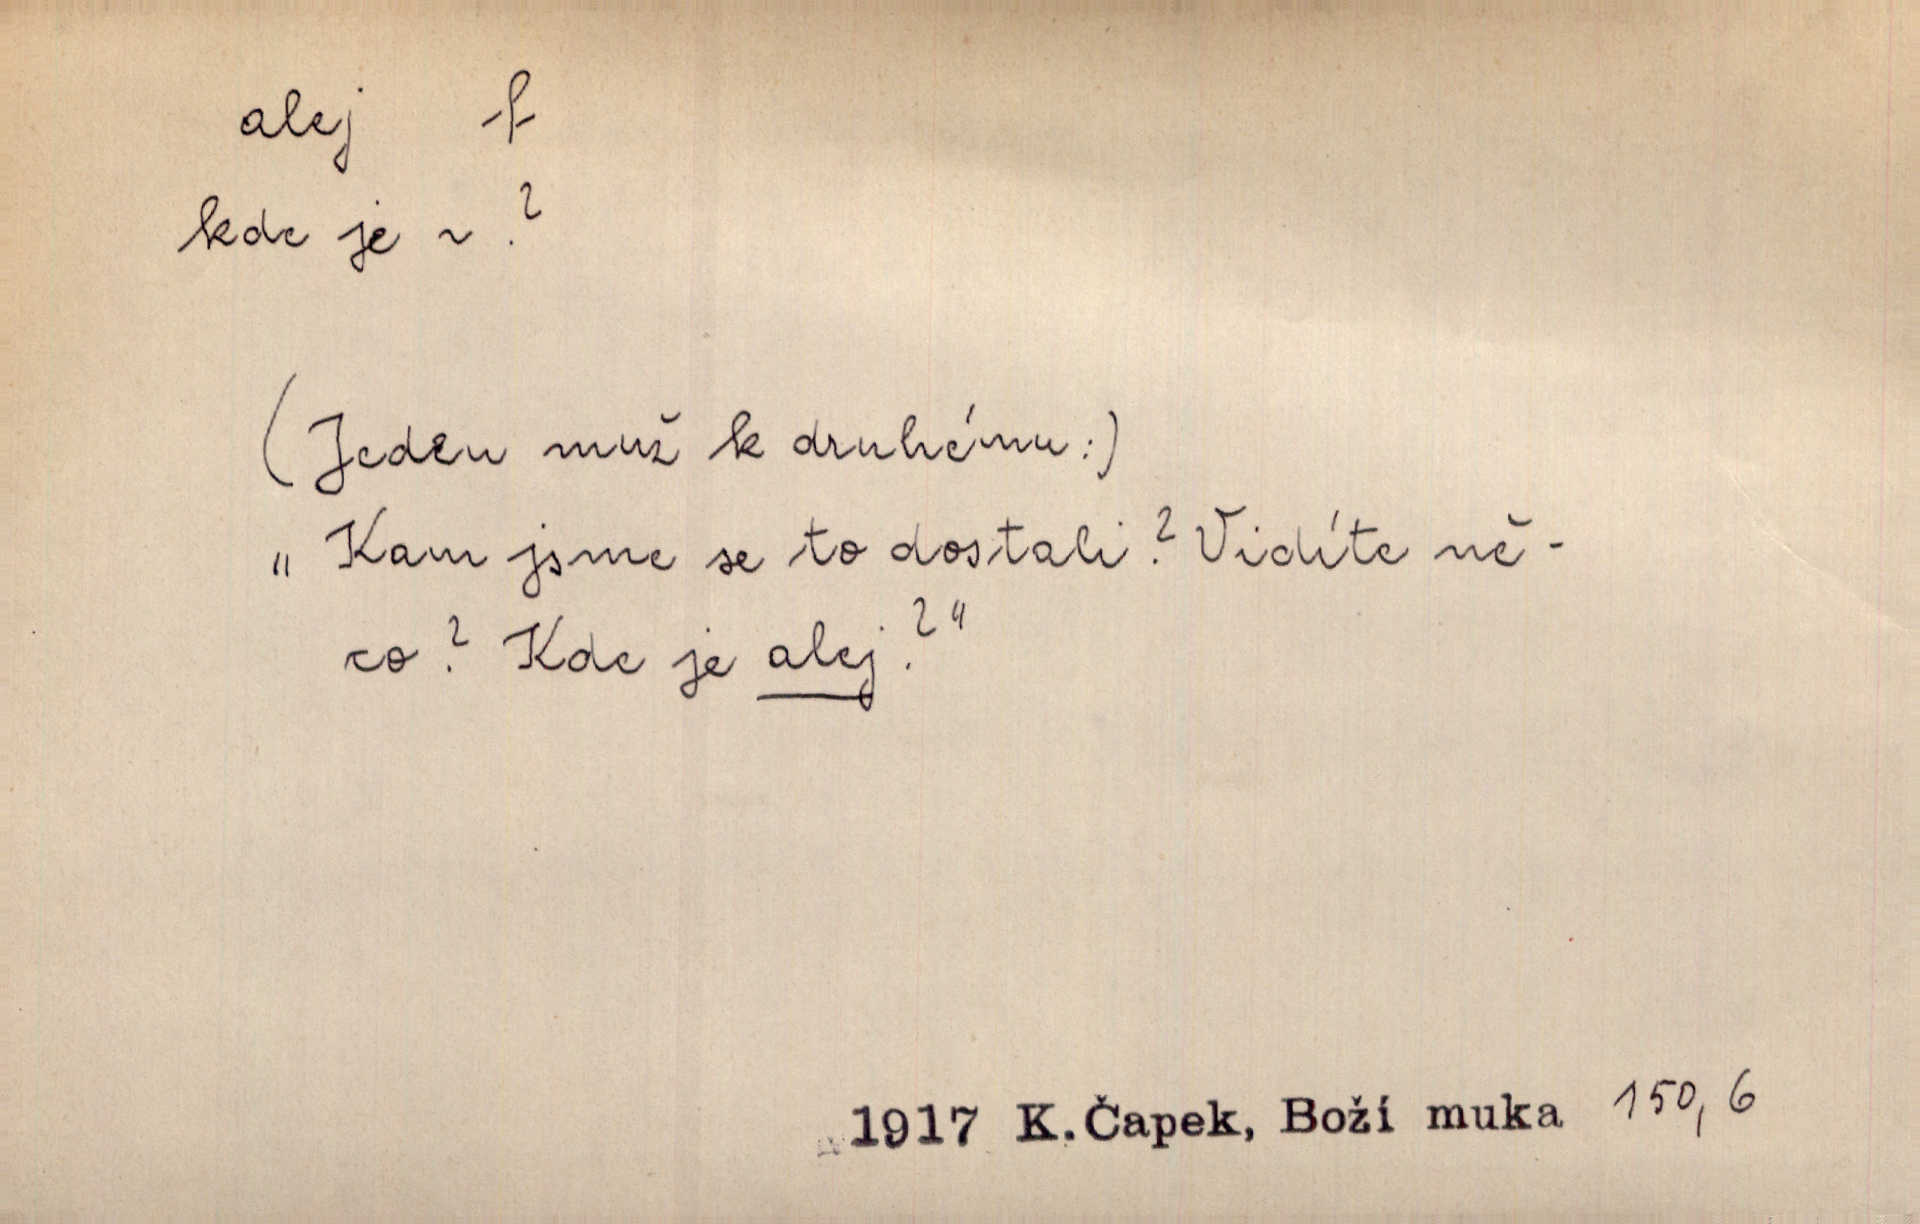 alej f
kde je ~ ?
(Jeden muž k druhému:)
„Kam jsme se to dostali? Vidíte ně-
co? Kde je alej?"
1917 K.Čapek, Boží muka 150, 6